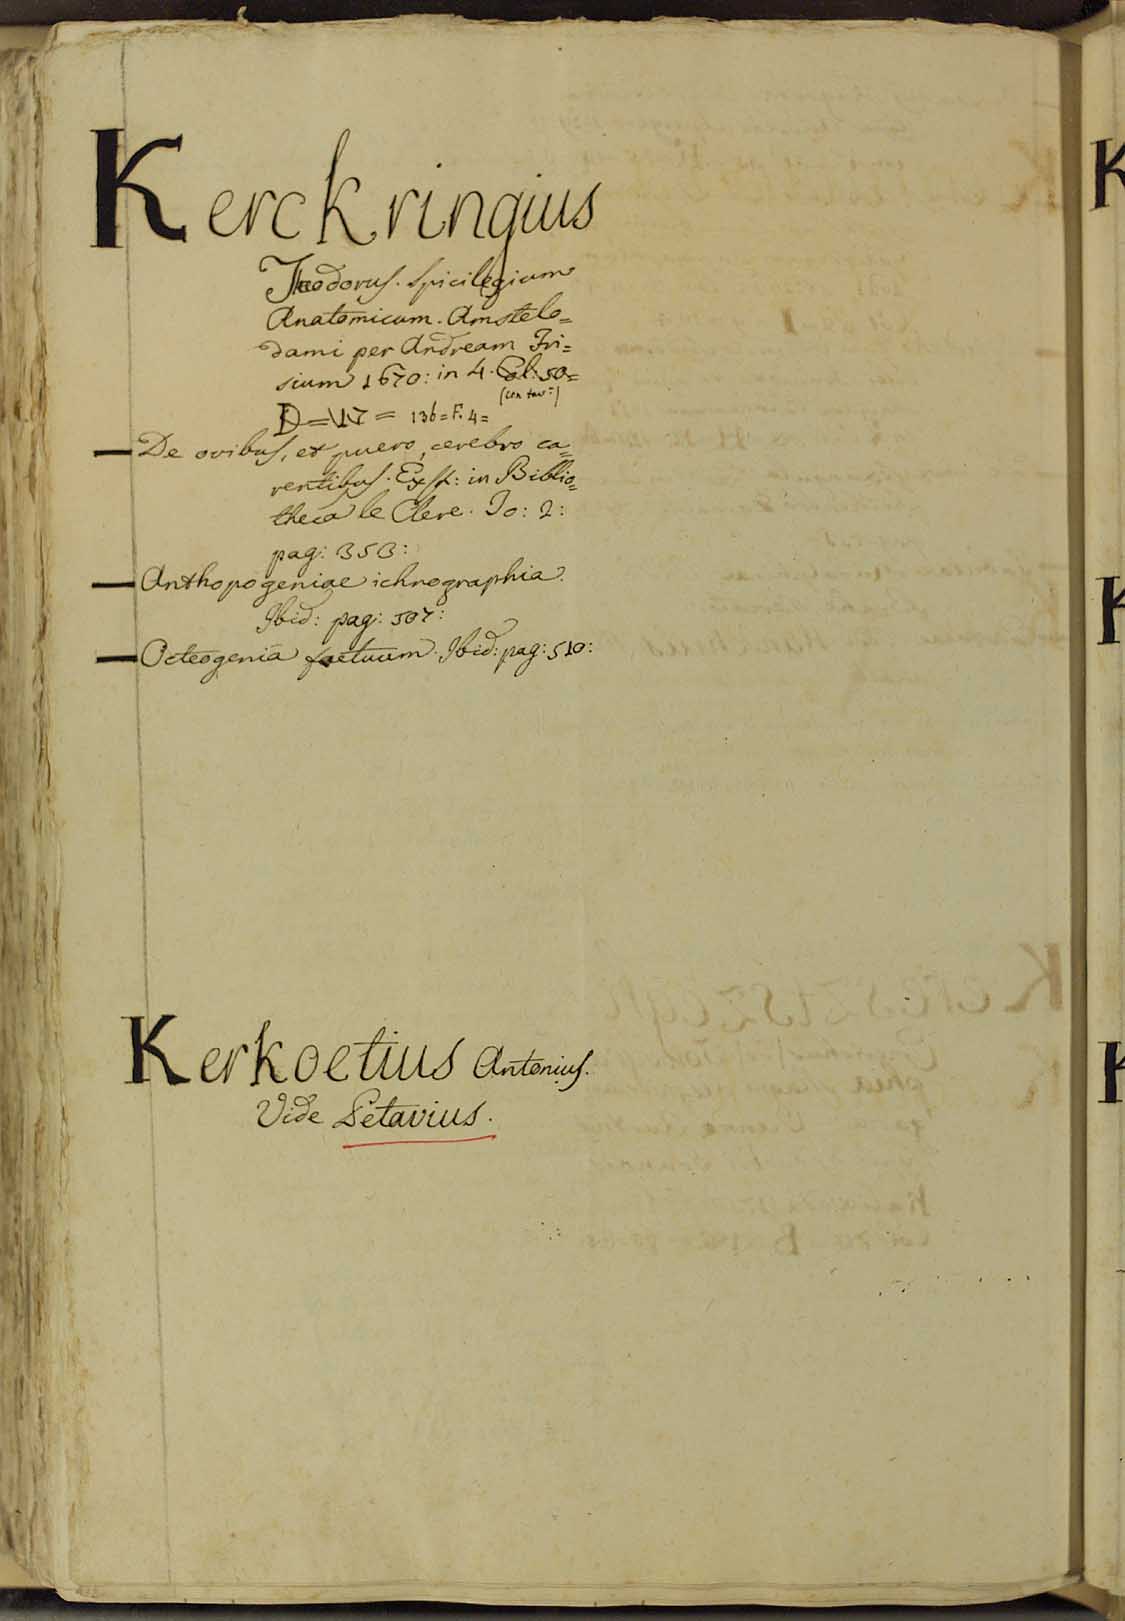 Kerckringius
Theodorus. Spicilegium
Anatomicum. Amstelo=
dami per Andream Fri=
sium 1670: in 4. Col: 50=
(con tav:)
D = 17 = 136=F. 4=
De ovibus, et puero, cerebro ca=
rentibus. Exst: in Biblio=
theca le Clerc. To: 2:
pag: 353:
Anthopogeniae ichnographia.
Ibid: pag: 507:
Octeogenia foetuum. Ibid: pag: 510:
Kerkoetius Antonius.
Vide Petavius.